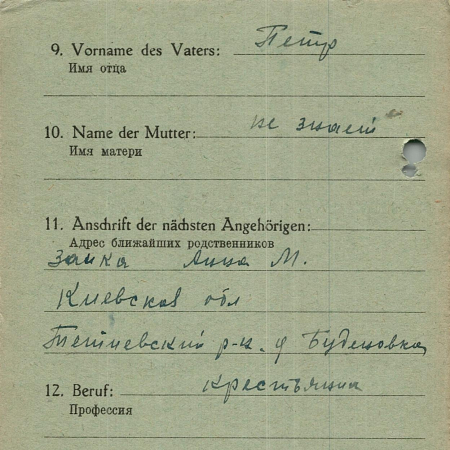 9. Vorname des Vaters: Петр
Имя отца
10. Name der Mutter: не знает
Имя матери
11. Anschrift der nächsten Angehörigen:
Адрес ближайших родственников
Заика Анна М.
Киевская обл
Тетиевский р-н. д Буденовка
12. Beruf: крестьянин
Профессия